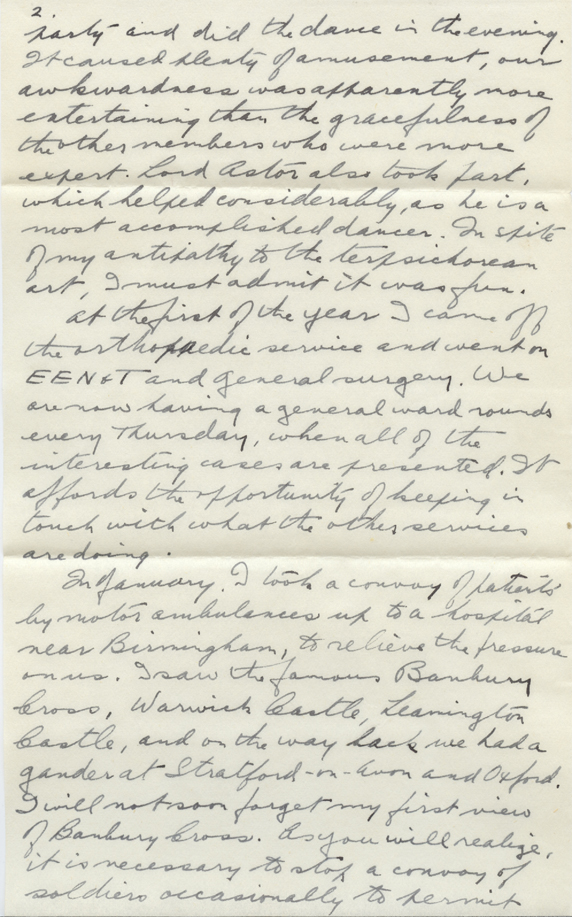 2
party and did the dance in the evening.
It caused plenty of amusement, our
awkwardness was apparently more
entertaining than the gracefulness of
the other members who were more
expert. Lord Astor also took part,
which helped considerably, as he is a
most accomplished dancer. In spite
of my antipathy to the terpsichorean
art, I must admit it was fun.
At the first of the year I came off
the orthopaedic service and went on
EEN&T and general surgery. We
are now having a general ward rounds
every Thursday, when all of the
interesting cases are presented. It
affords the opportunity of keeping in
touch with what the other services
are doing.
In January, I took a convoy of patients
by motor ambulances up to a hospital
near Birmingham, to relieve the pressure
on us. I saw the famous Banbury
Cross, Warwick Castle, Leamington
Castle, and on the way back we had a
gander at Stratford-on-Avon and Oxford.
I will not soon forget my first view
of Banbury Cross. As you will realize,
it is necessary to stop a convoy of
soldiers occasionally to permit